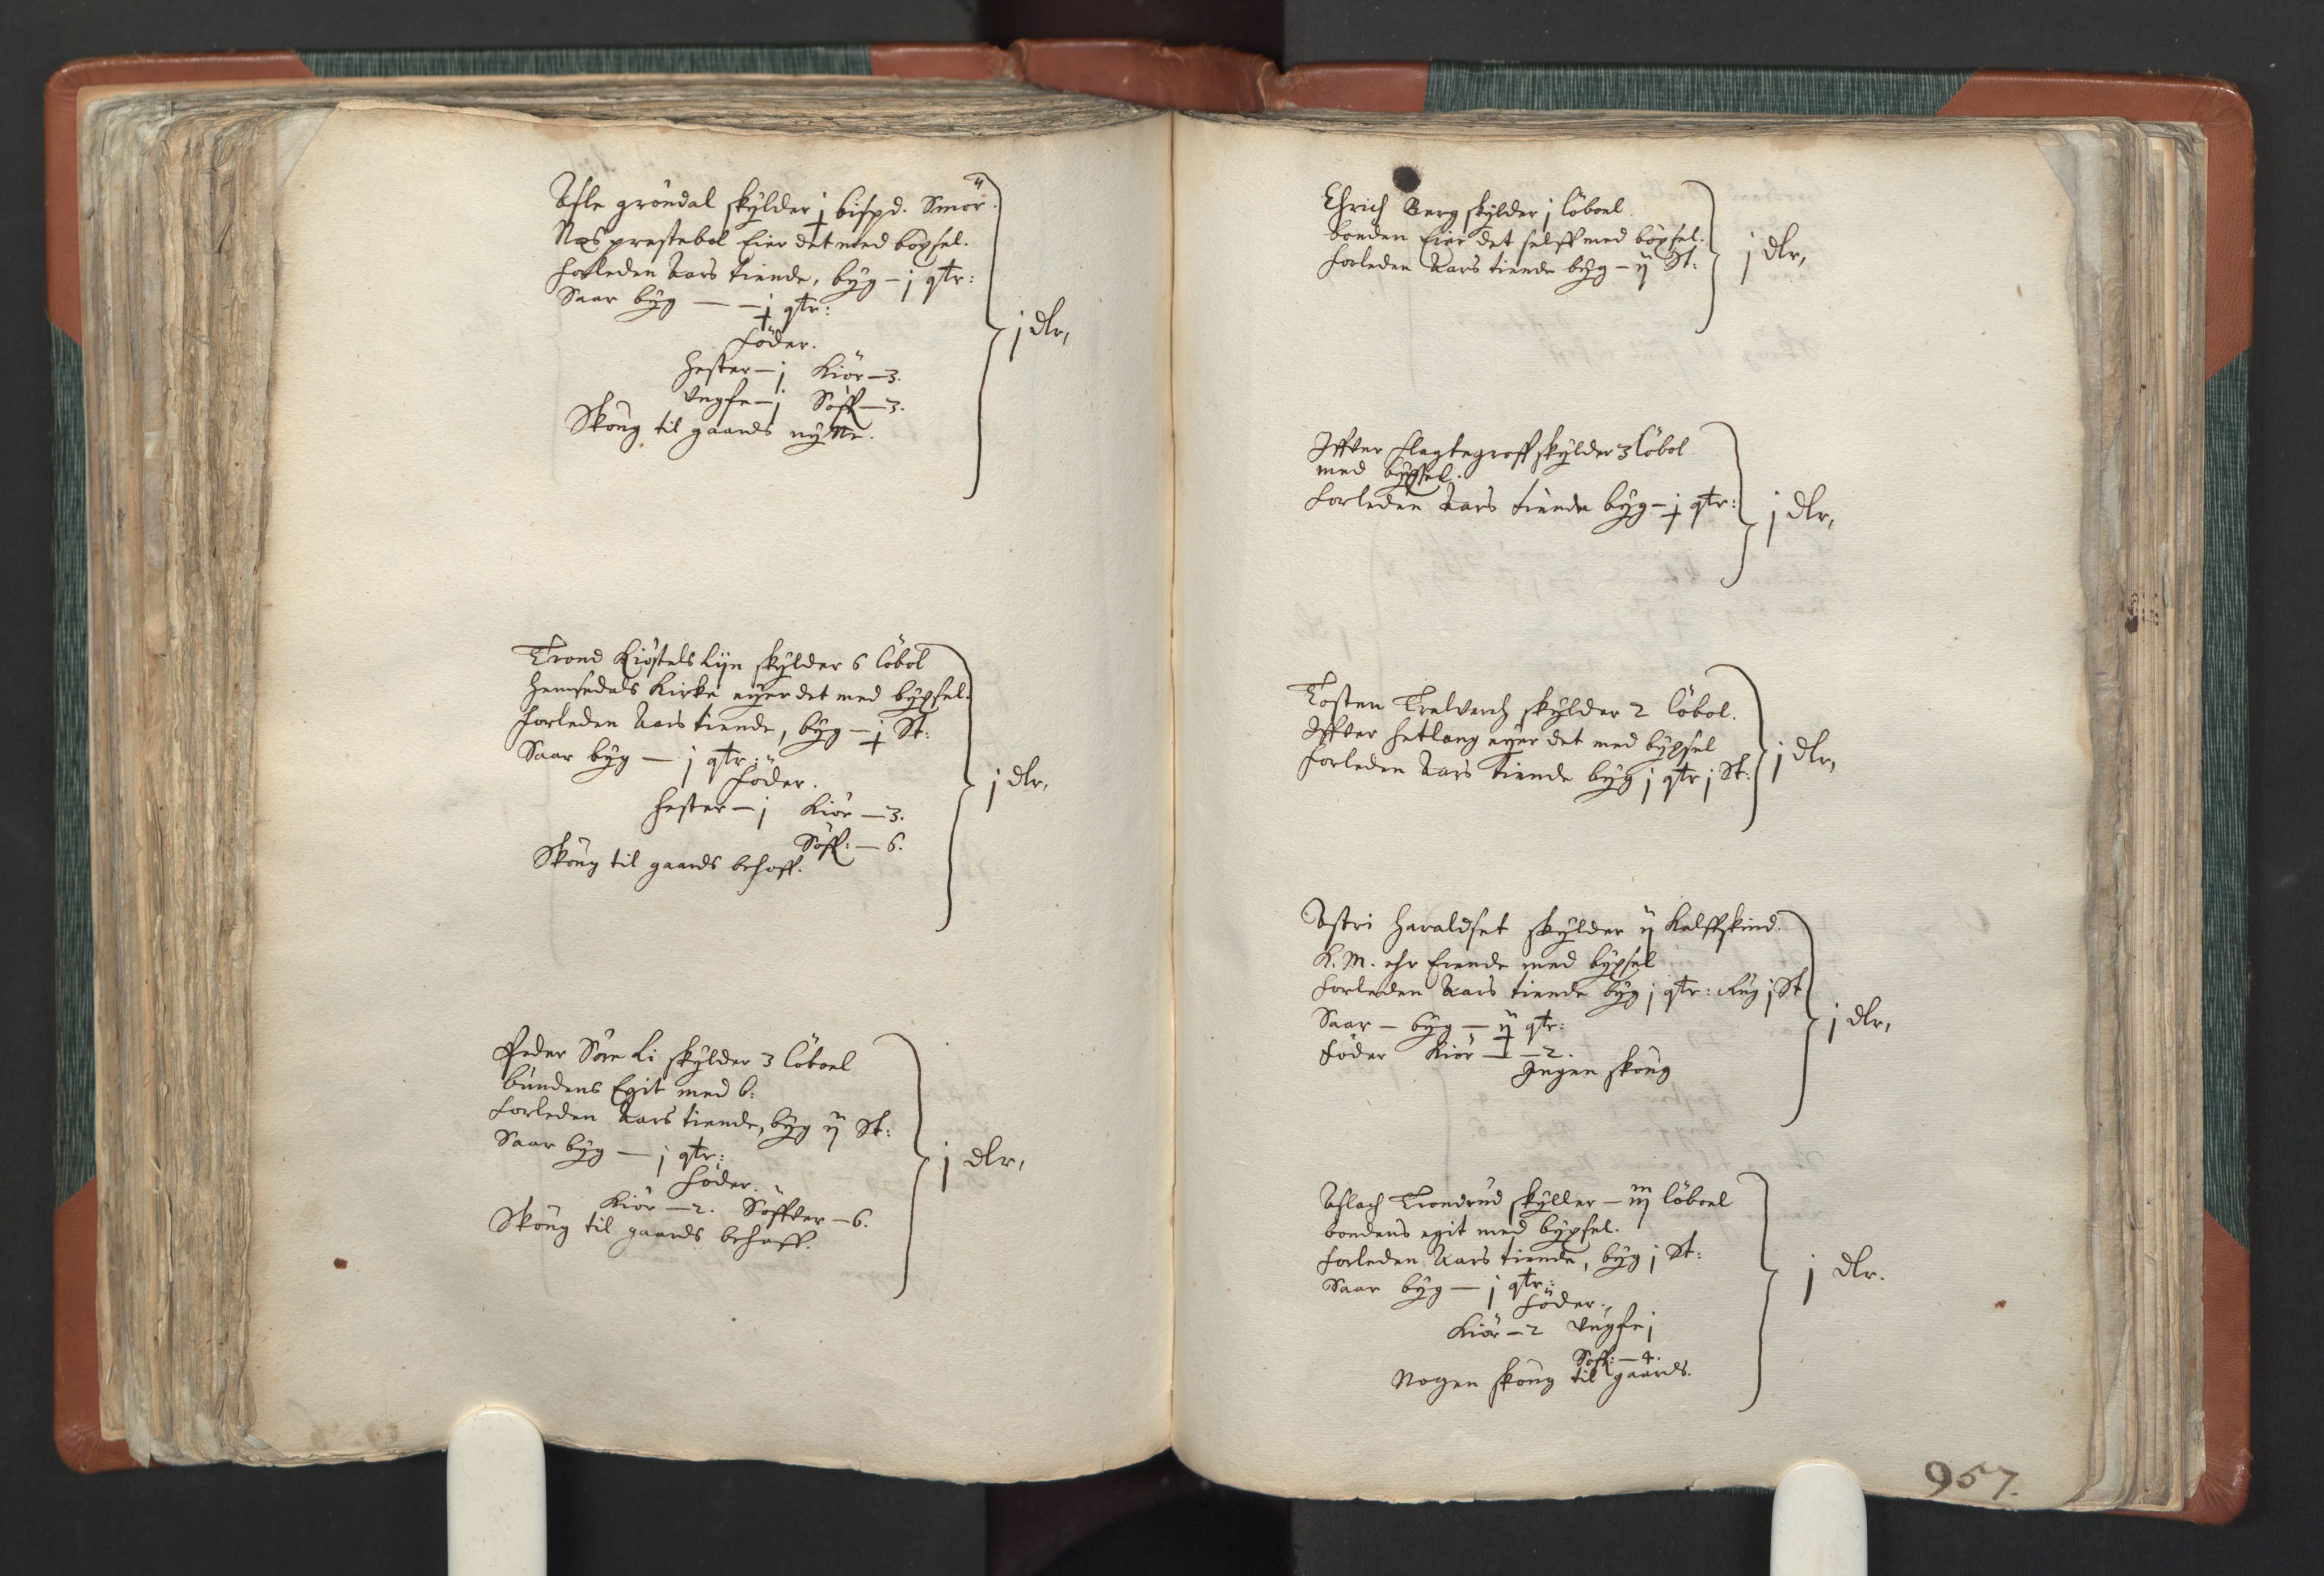 Asle gröndal skylder j bispd. Smör.
Næs prestebol Eier det med böxsel.
forleden Aars tiende, byg – j qtr:
Saar byg — – j qtr:
föder.
hester – j Kiör – 3.
Vngfe – j Söff – 3.
Skoug til gaards nytte.
j dlr,
Trond Kiöstels Lijn skylder 6 löbol
hemsedals Kirke eyer det med byxsel.
forleden Aars tiende, byg – j St:
Saar byg — j qtr:
föder.
hester – j Kiör – 3.
Söff: – 6.
Skoug til gaards behoff.
j dlr,
Peder Söre Li skylder 3 löboel
bundens Egit med b:
forleden Aars tiende, byg ij St:
Saar byg — j qtr:
föder.
Kiör – 2. Söffver – 6.
Skoug til gaards behoff.
j dlr,
Ehrich Berg skylder j löboel.
bonden Eier det selff med böxsel.
forleden Aars tiende byg – ij St:
j dlr,
Iffver flagtegroff skylder 3 löbol
med byxsel.
forleden Aars tiende byg – j qtr:
j dlr,
Tosten Trelverch skylder 2 löbol.
Iffver hetlang eyer det med byxsel
forleden Aars tiende byg j qtr j St:
j dlr,
Astri haraldset skylder ij Kalffskind.
K. M. ehr Eiende med byxsel
forleden Aars tiende byg j qtr: Rug j St
Saar – byg – ij qtr:
föder Kiör – 2.
Ingen skoug
j dlr,
Aslach Trondrud skyller – iij löboel
bondens egit med byxsel.
forleden Aars tiende, byg j St:
Saar byg — j qtr:
föder.
Kiör – 2 Vngfe j
Söff: – 4.
Nogen skoug til gaards.
j dlr.
957.